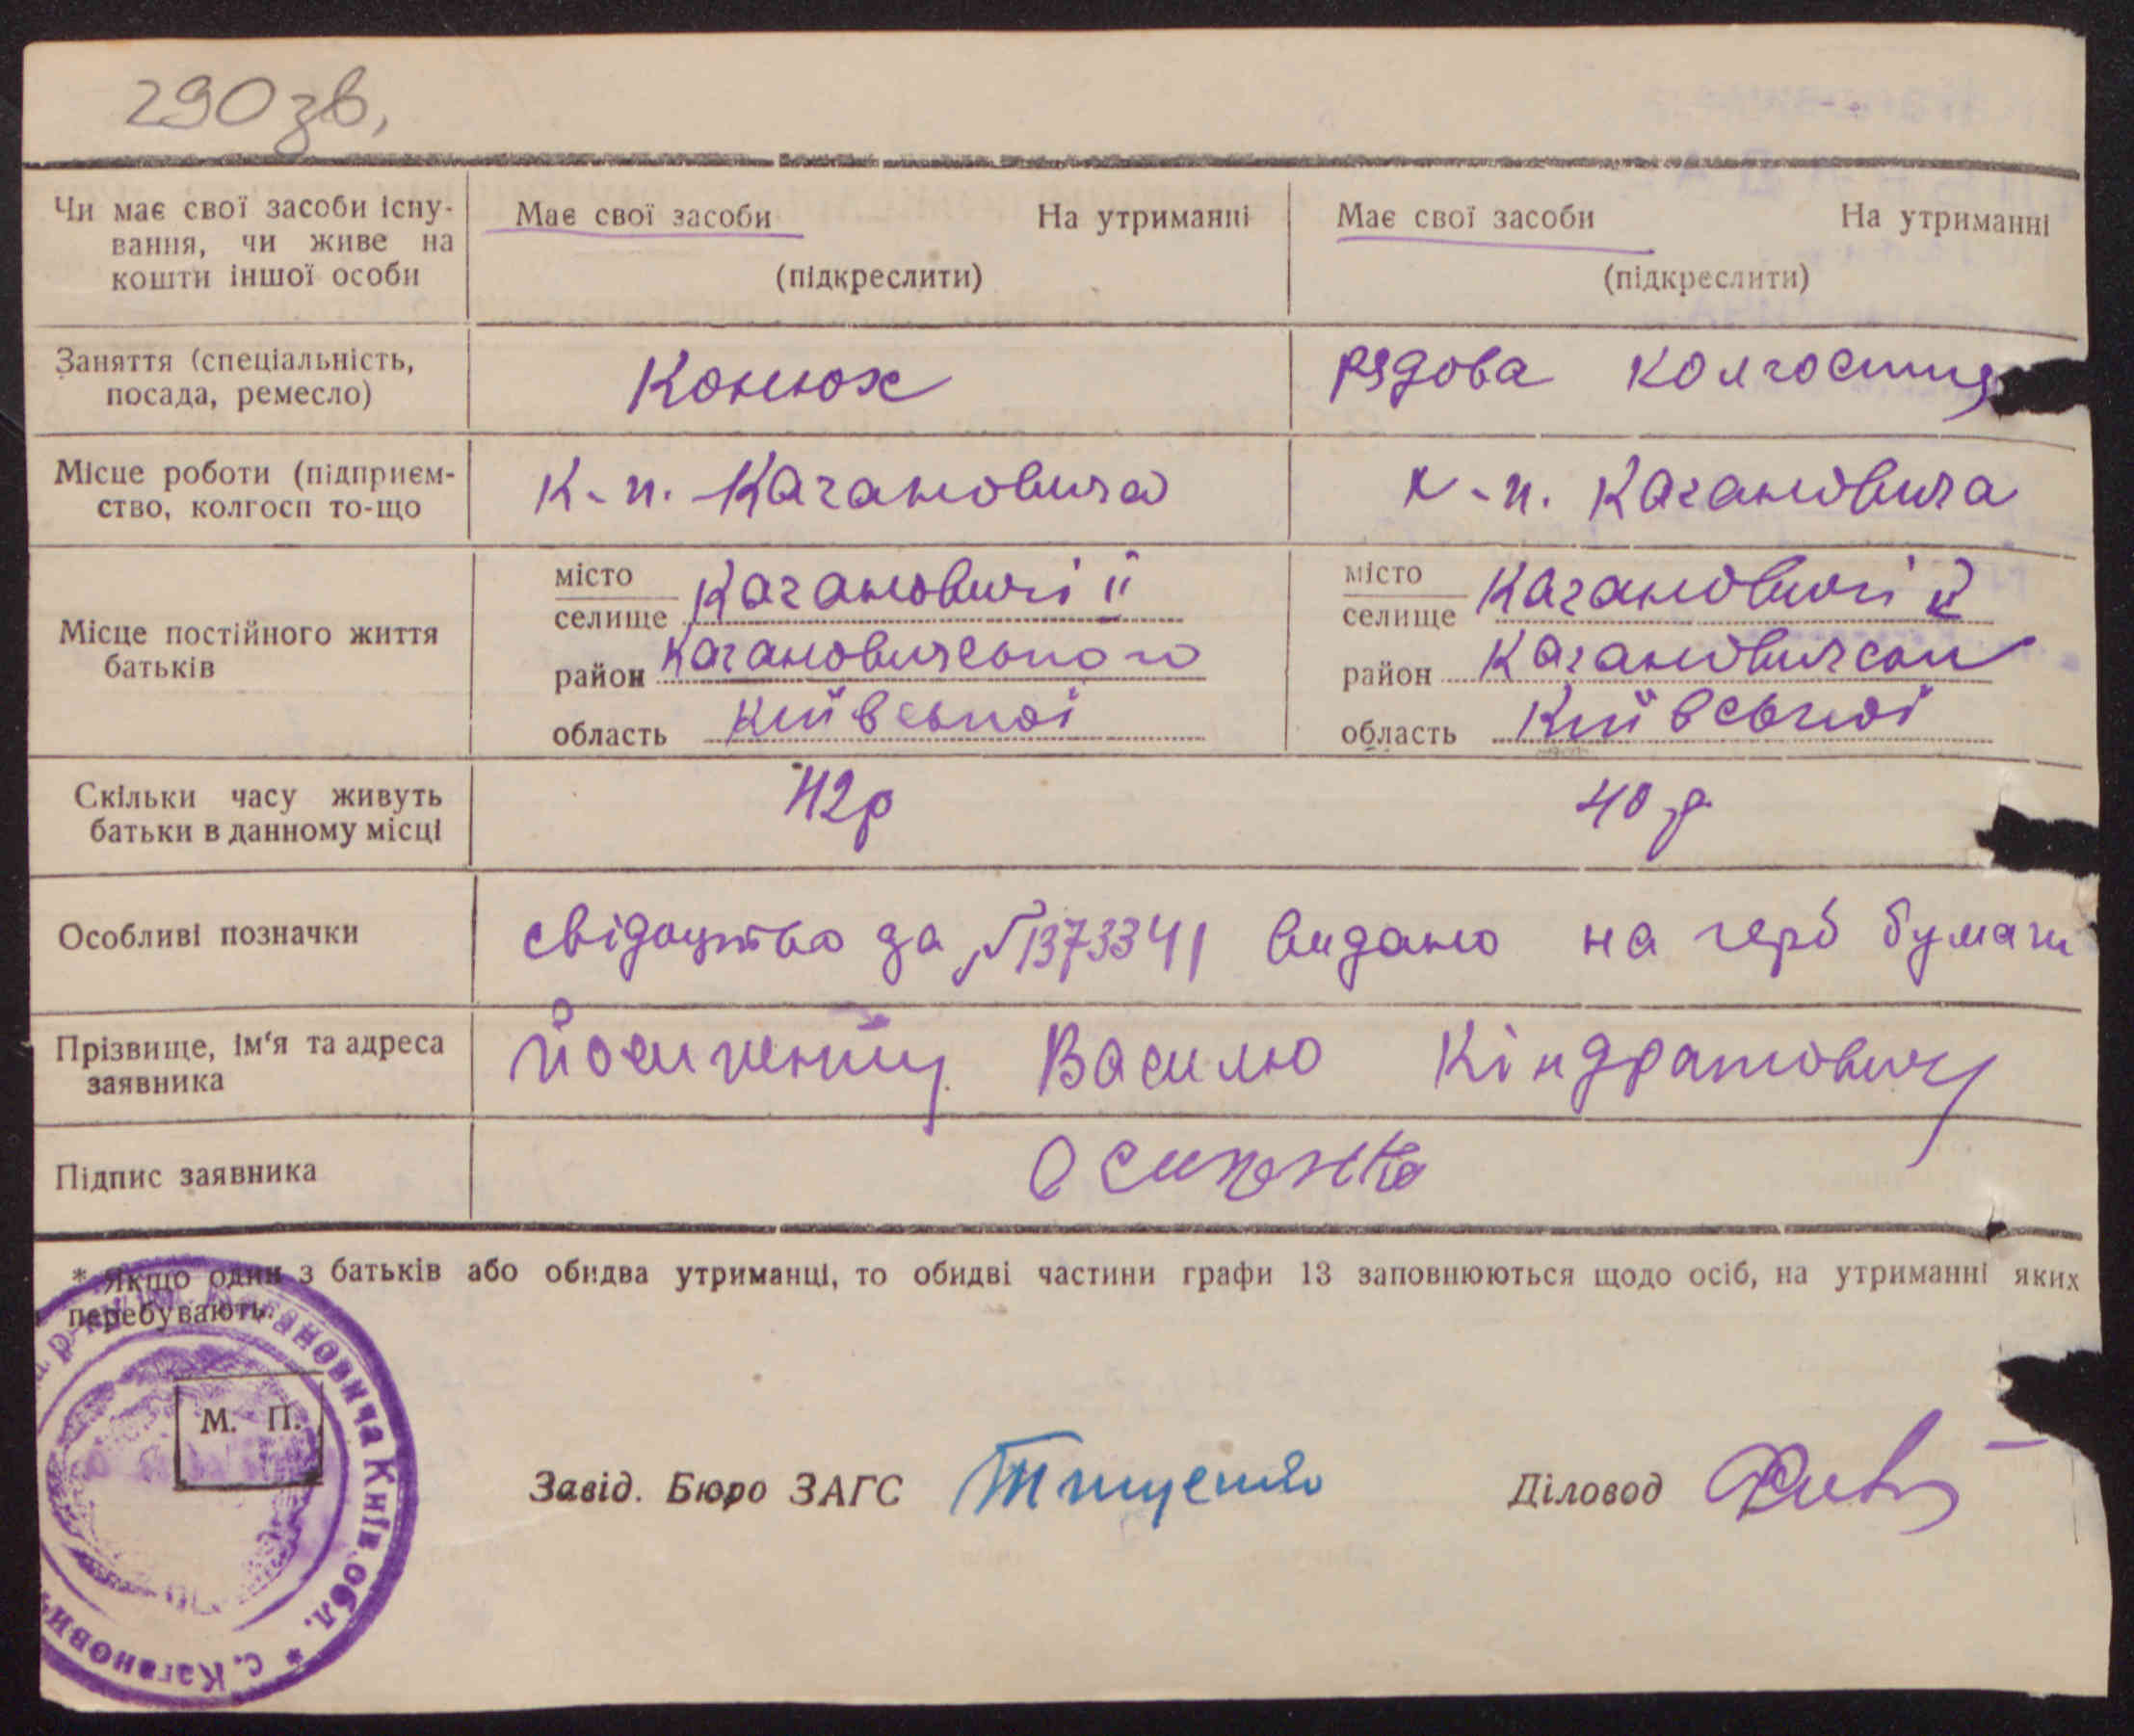 290 зв,
Чи має свої засоби існу-
вання, чи живе на
кошти іншої особи
Має свої засоби На утриманні
(підкреслити)
Має свої засоби На утриманні
(підкреслити)
Заняття (спеціальність,
посада, ремесло)
Конюх
рядова колгоспниця
Місце роботи (підприєм-
ство, колгосп то-що
К-п. Кагановича
к-п. Кагановича
Місце постійного життя
батьків
місто
селище Кагановичі ІІ
район Кагановичського
область Київської
місто
селище Кагановичі ІІ
район Кагановичськ
область Київської
Скільки часу живуть
батьки в данному місці
42р
40 р
Особливі позначки
свідоцтво за № 1373341 видано на герб бумаги
Прізвище, ім'я та адреса
заявника
Йосипенку Василю Кіндратовичу
Підпис заявника
Осипенко
* Якщо один з батьків або обидва утриманці, то обидві частини графи 13 заповнюються щодо осіб, на утриманні яких
перебувають.
М. П.
Кагановича Київ. обл. * с. Каганови
Завід. Бюро ЗАГС Тищенко
Діловод